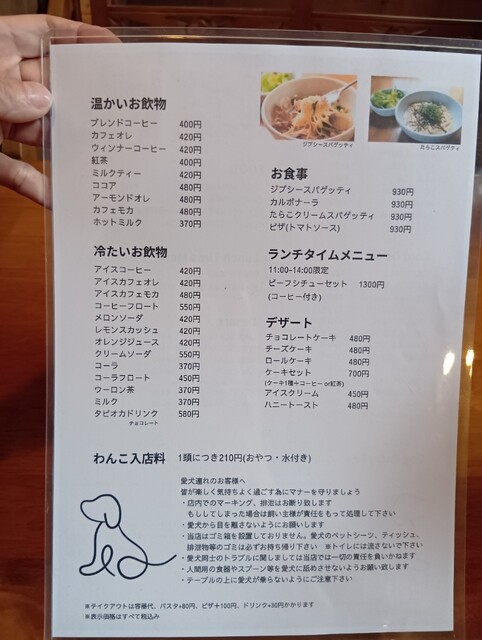 温かいお飲物
ブレンドコーヒー 400円
カフェオレ 420円
ウィンナーコーヒー 420円
紅茶 400円
ミルクティー 420円
ココア 480円
アーモンドオレ 480円
カフェモカ 480円
ホットミルク 370円
冷たいお飲物
アイスコーヒー 420円
アイスカフェオレ 420円
アイスカフェモカ 480円
コーヒーフロート 550円
メロンソーダ 420円
レモンスカッシュ 420円
オレンジジュース 420円
クリームソーダ 550円
コーラ 370円
コーラフロート 450円
ウーロン茶 370円
ミルク 370円
タピオカドリンク 580円
チョコレート
ジプシースパゲッティ
たらこスパゲティ
お食事
ジプシースパゲッティ 930円
カルボナーラ 930円
たらこクリームスパゲッティ 930円
ピザ(トマトソース) 930円
ランチタイムメニュー
11:00-14:00限定
ビーフシチューセット 1300円
(コーヒー付き)
デザート
チョコレートケーキ 480円
チーズケーキ 480円
ロールケーキ 480円
ケーキセット 700円
(ケーキ1種+コーヒー or紅茶)
アイスクリーム 450円
ハニートースト 480円
わんこ入店料 1頭につき210円(おやつ・水付き)
愛犬連れのお客様へ
皆が楽しく気持ちよく過ごす為にマナーを守りましょう
・店内でのマーキング、排泄はお断り致します
もししてしまった場合は飼い主様が責任をもって処理して下さい
・愛犬から目を離さないようにお願いします
・当店はゴミ箱を設置しておりません。愛犬のペットシーツ、ティッシュ、
排泄物等のゴミは必ずお持ち帰り下さい ※トイレには流さないで下さい
・愛犬同士のトラブルに関しましては当店では一切の責任を負いかねます
・人間用の食器やスプーン等を愛犬に舐めさせないようお願い致します
・テーブルの上に愛犬が乗らないようにご注意下さい
※テイクアウトは容器代、パスタ+80円、ピザ+100円、ドリンク+30円かかります
※表示価格はすべて税込み